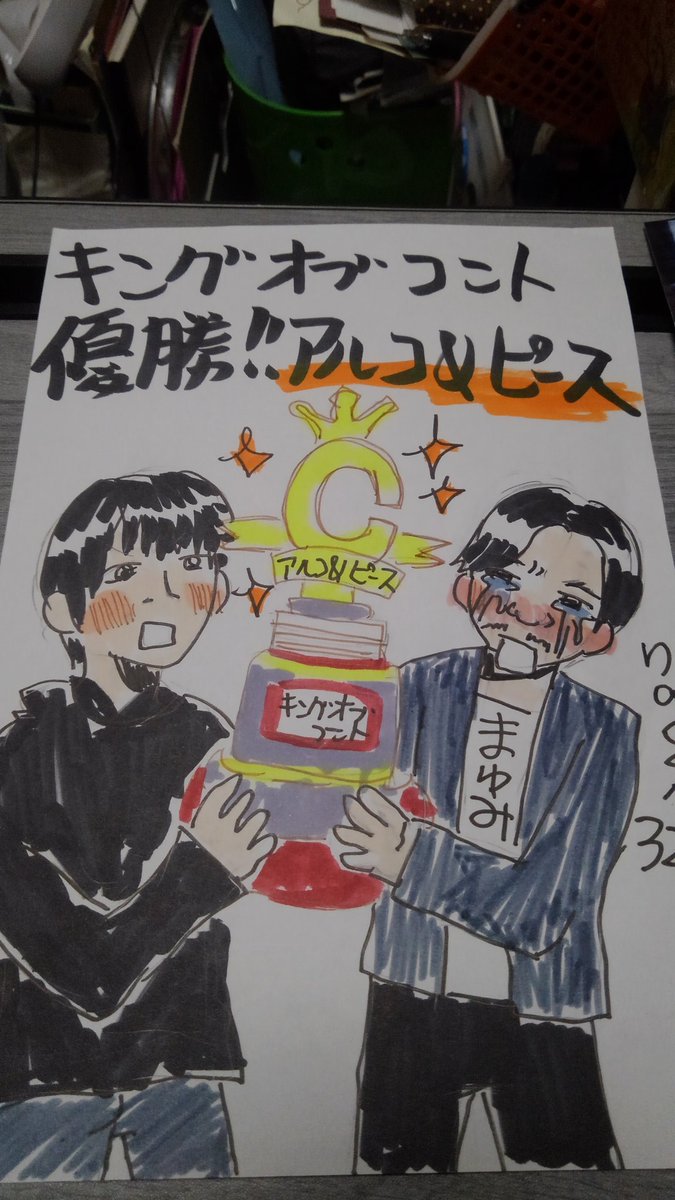 キングオブコント
優勝!!アルコ&ピース
C
アルコ&ピース
キングオブ
コント
まゆみ